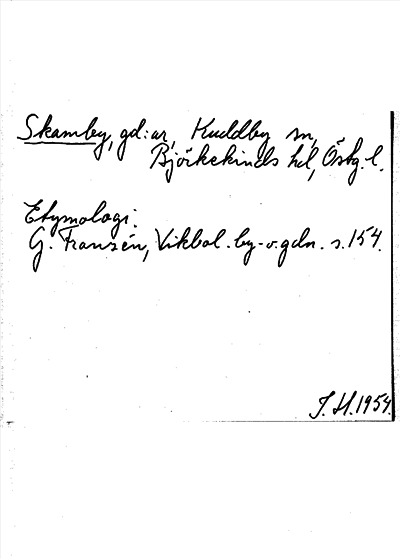 Skamby, gd:ar, Kuddby sn,
Björkekinds hd, Östg. l.
Etymologi.
G. Franzén, Vikbol. by- o. gdn. s. 154.
J. H. 1954.